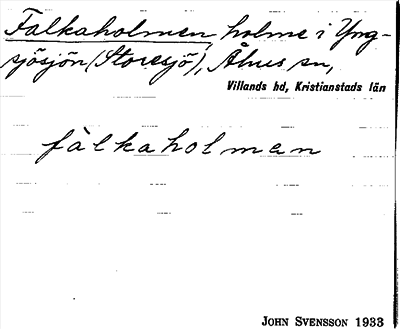 Falkaholmen, holme i Yng-
sjösjön (Storesjö), Åhus sn,
Villands hd, Kristianstads län
fàlkaholmen
JOHN SVENSSON 1933